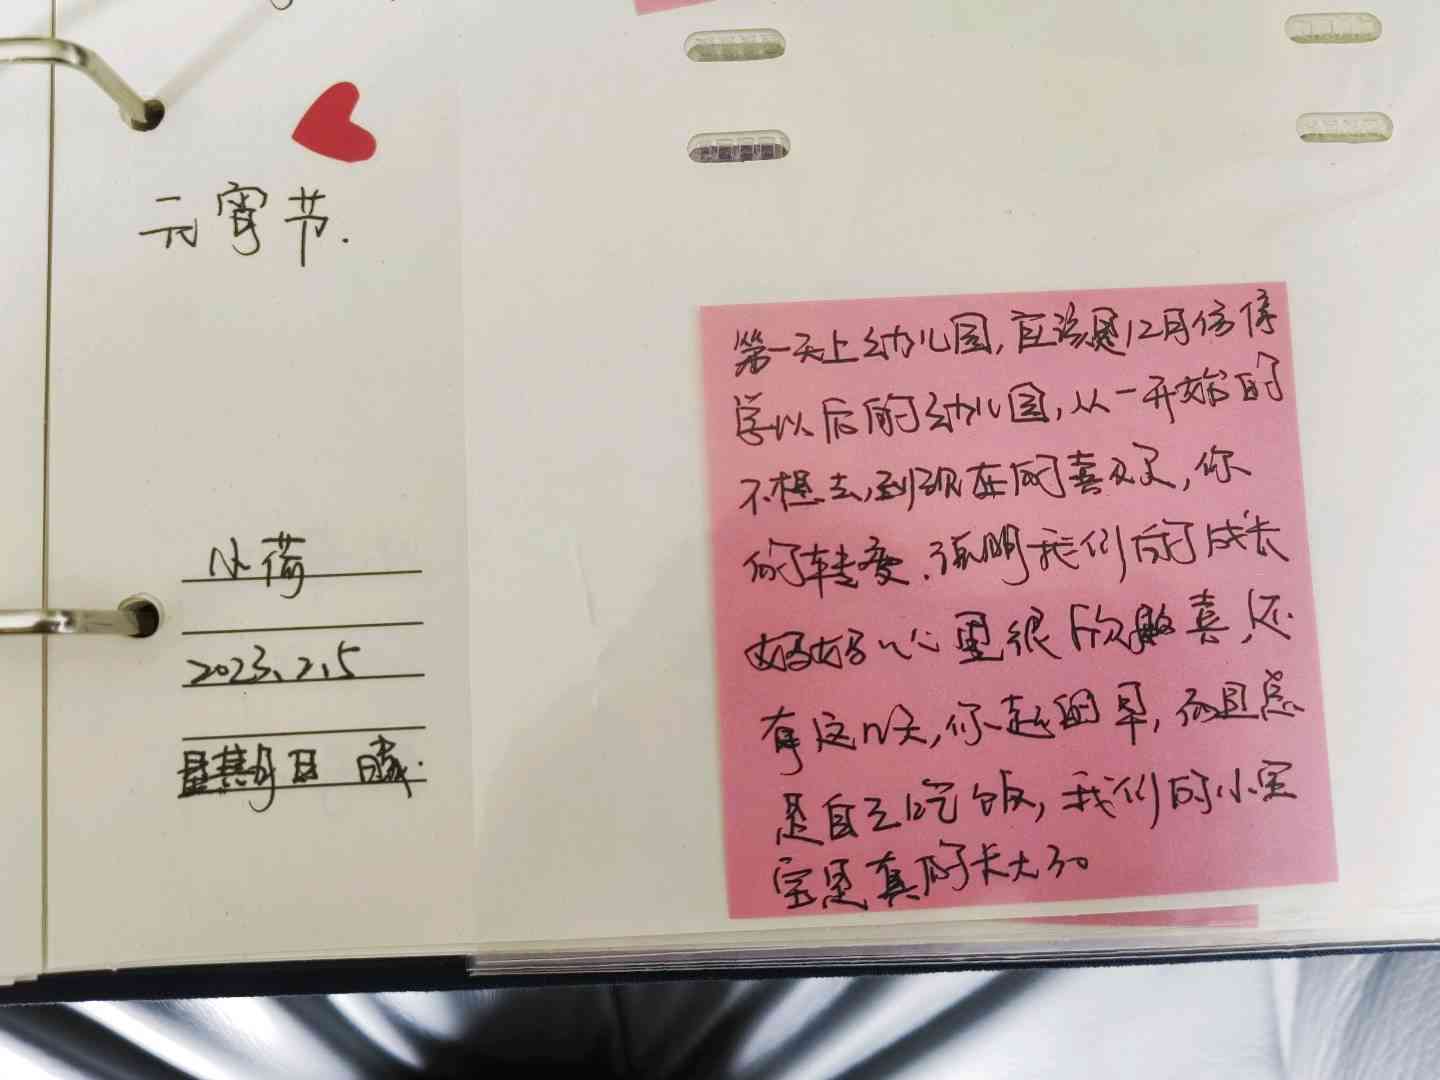 元宵节.
小荷
2023.2.5
星期日 晴.
第一天上幼儿园,应该是12月份停
学以后的幼儿园,从一开始的
不想去,到现在的喜欢,你
的转变,说明我们的成长
妈妈心里很欣慰,还
有这几天,你起的早,而且总
是自己吃饭,我们的小宝
宝是真的长大了。